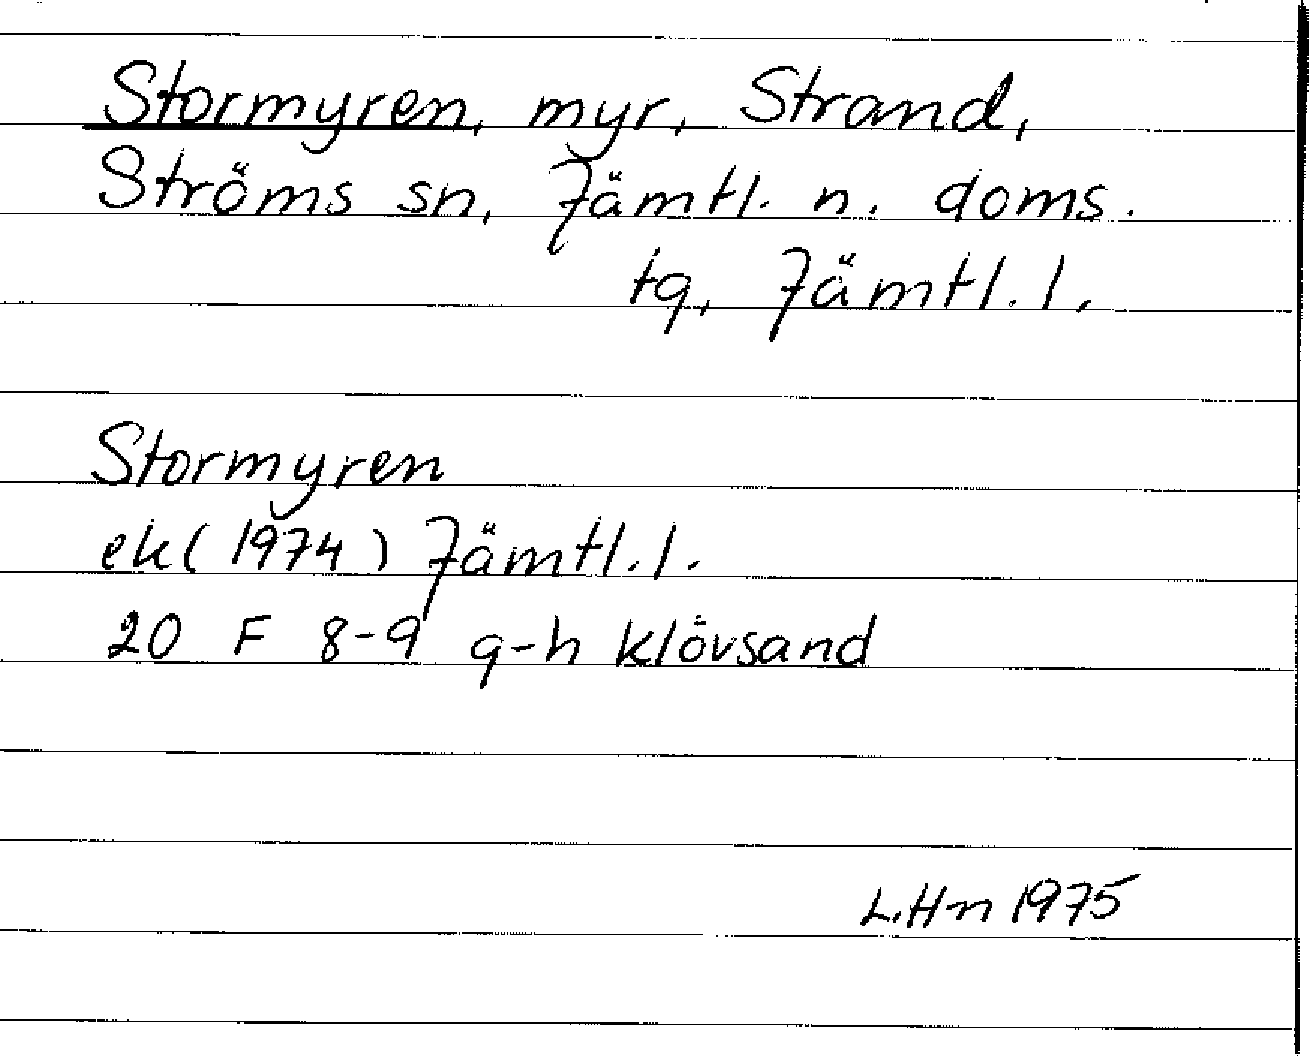 Stormyren, myr, Strand,
Ströms sn, Jämtl. n. doms.
tg, Jämtl. l.
Stormyren
ek (1974) Jämtl. l.
20 F 8-9 g-h klövsand
L.Hn 1975